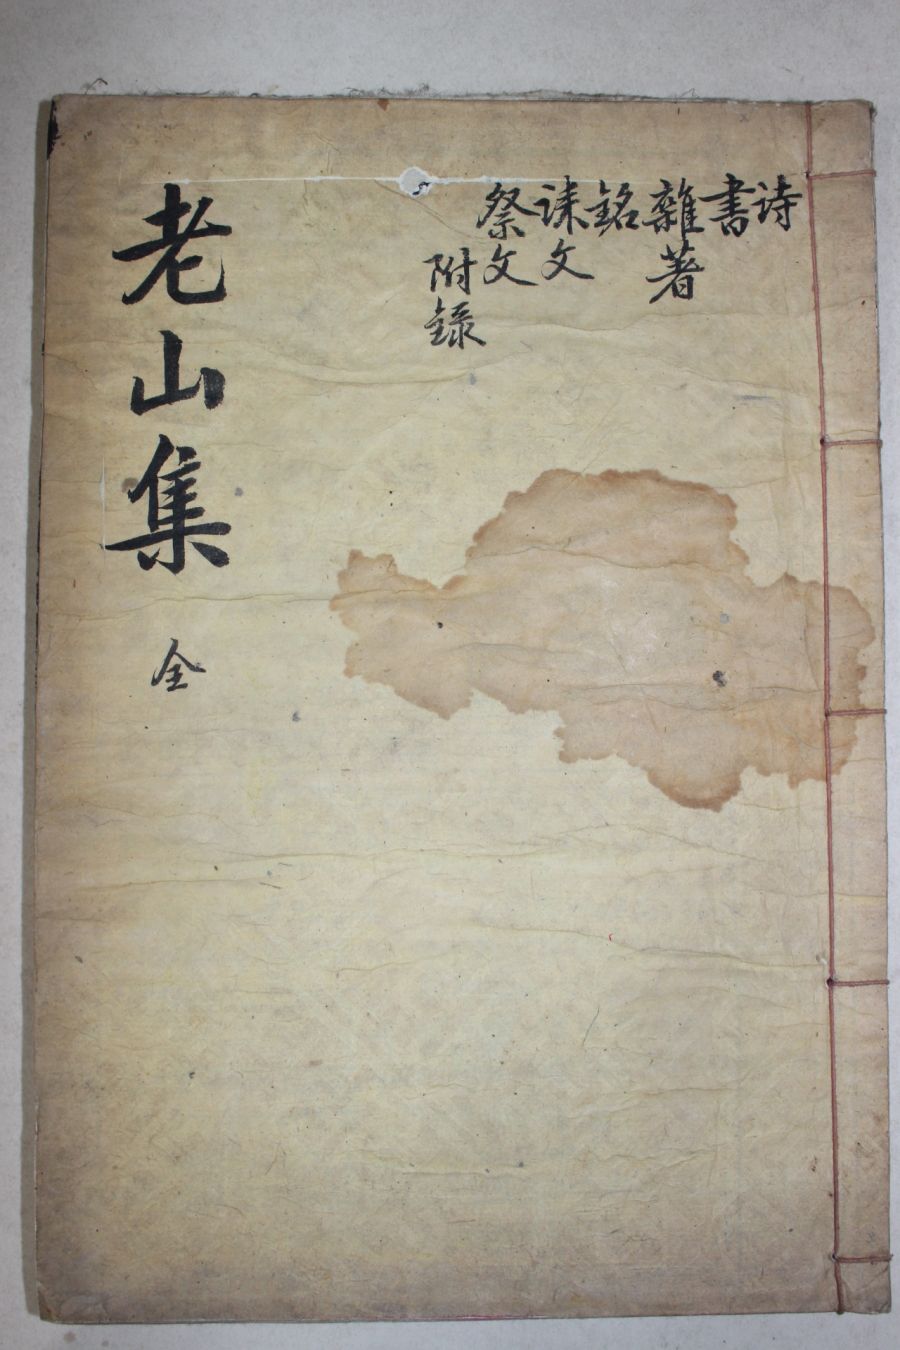 詩
書
雜著
銘
誄文
祭文
附錄
老山集 全